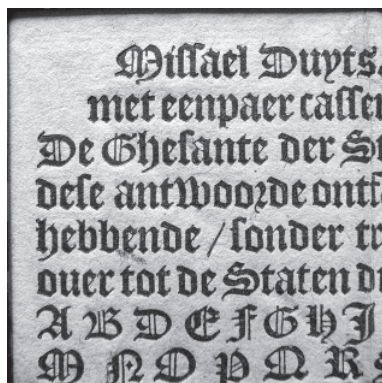 Miſſael Duyts
met eenpaer caſſe
De Gheſante der S
deſe antwoorde ontf
hebbende / ſonder tr
ouer tot de Staten d
A B D E F G H I
M N O P Q R S